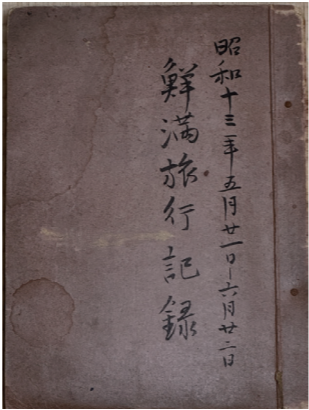 昭和十三年五月廿一日－六月廿二日
鮮満旅行記録